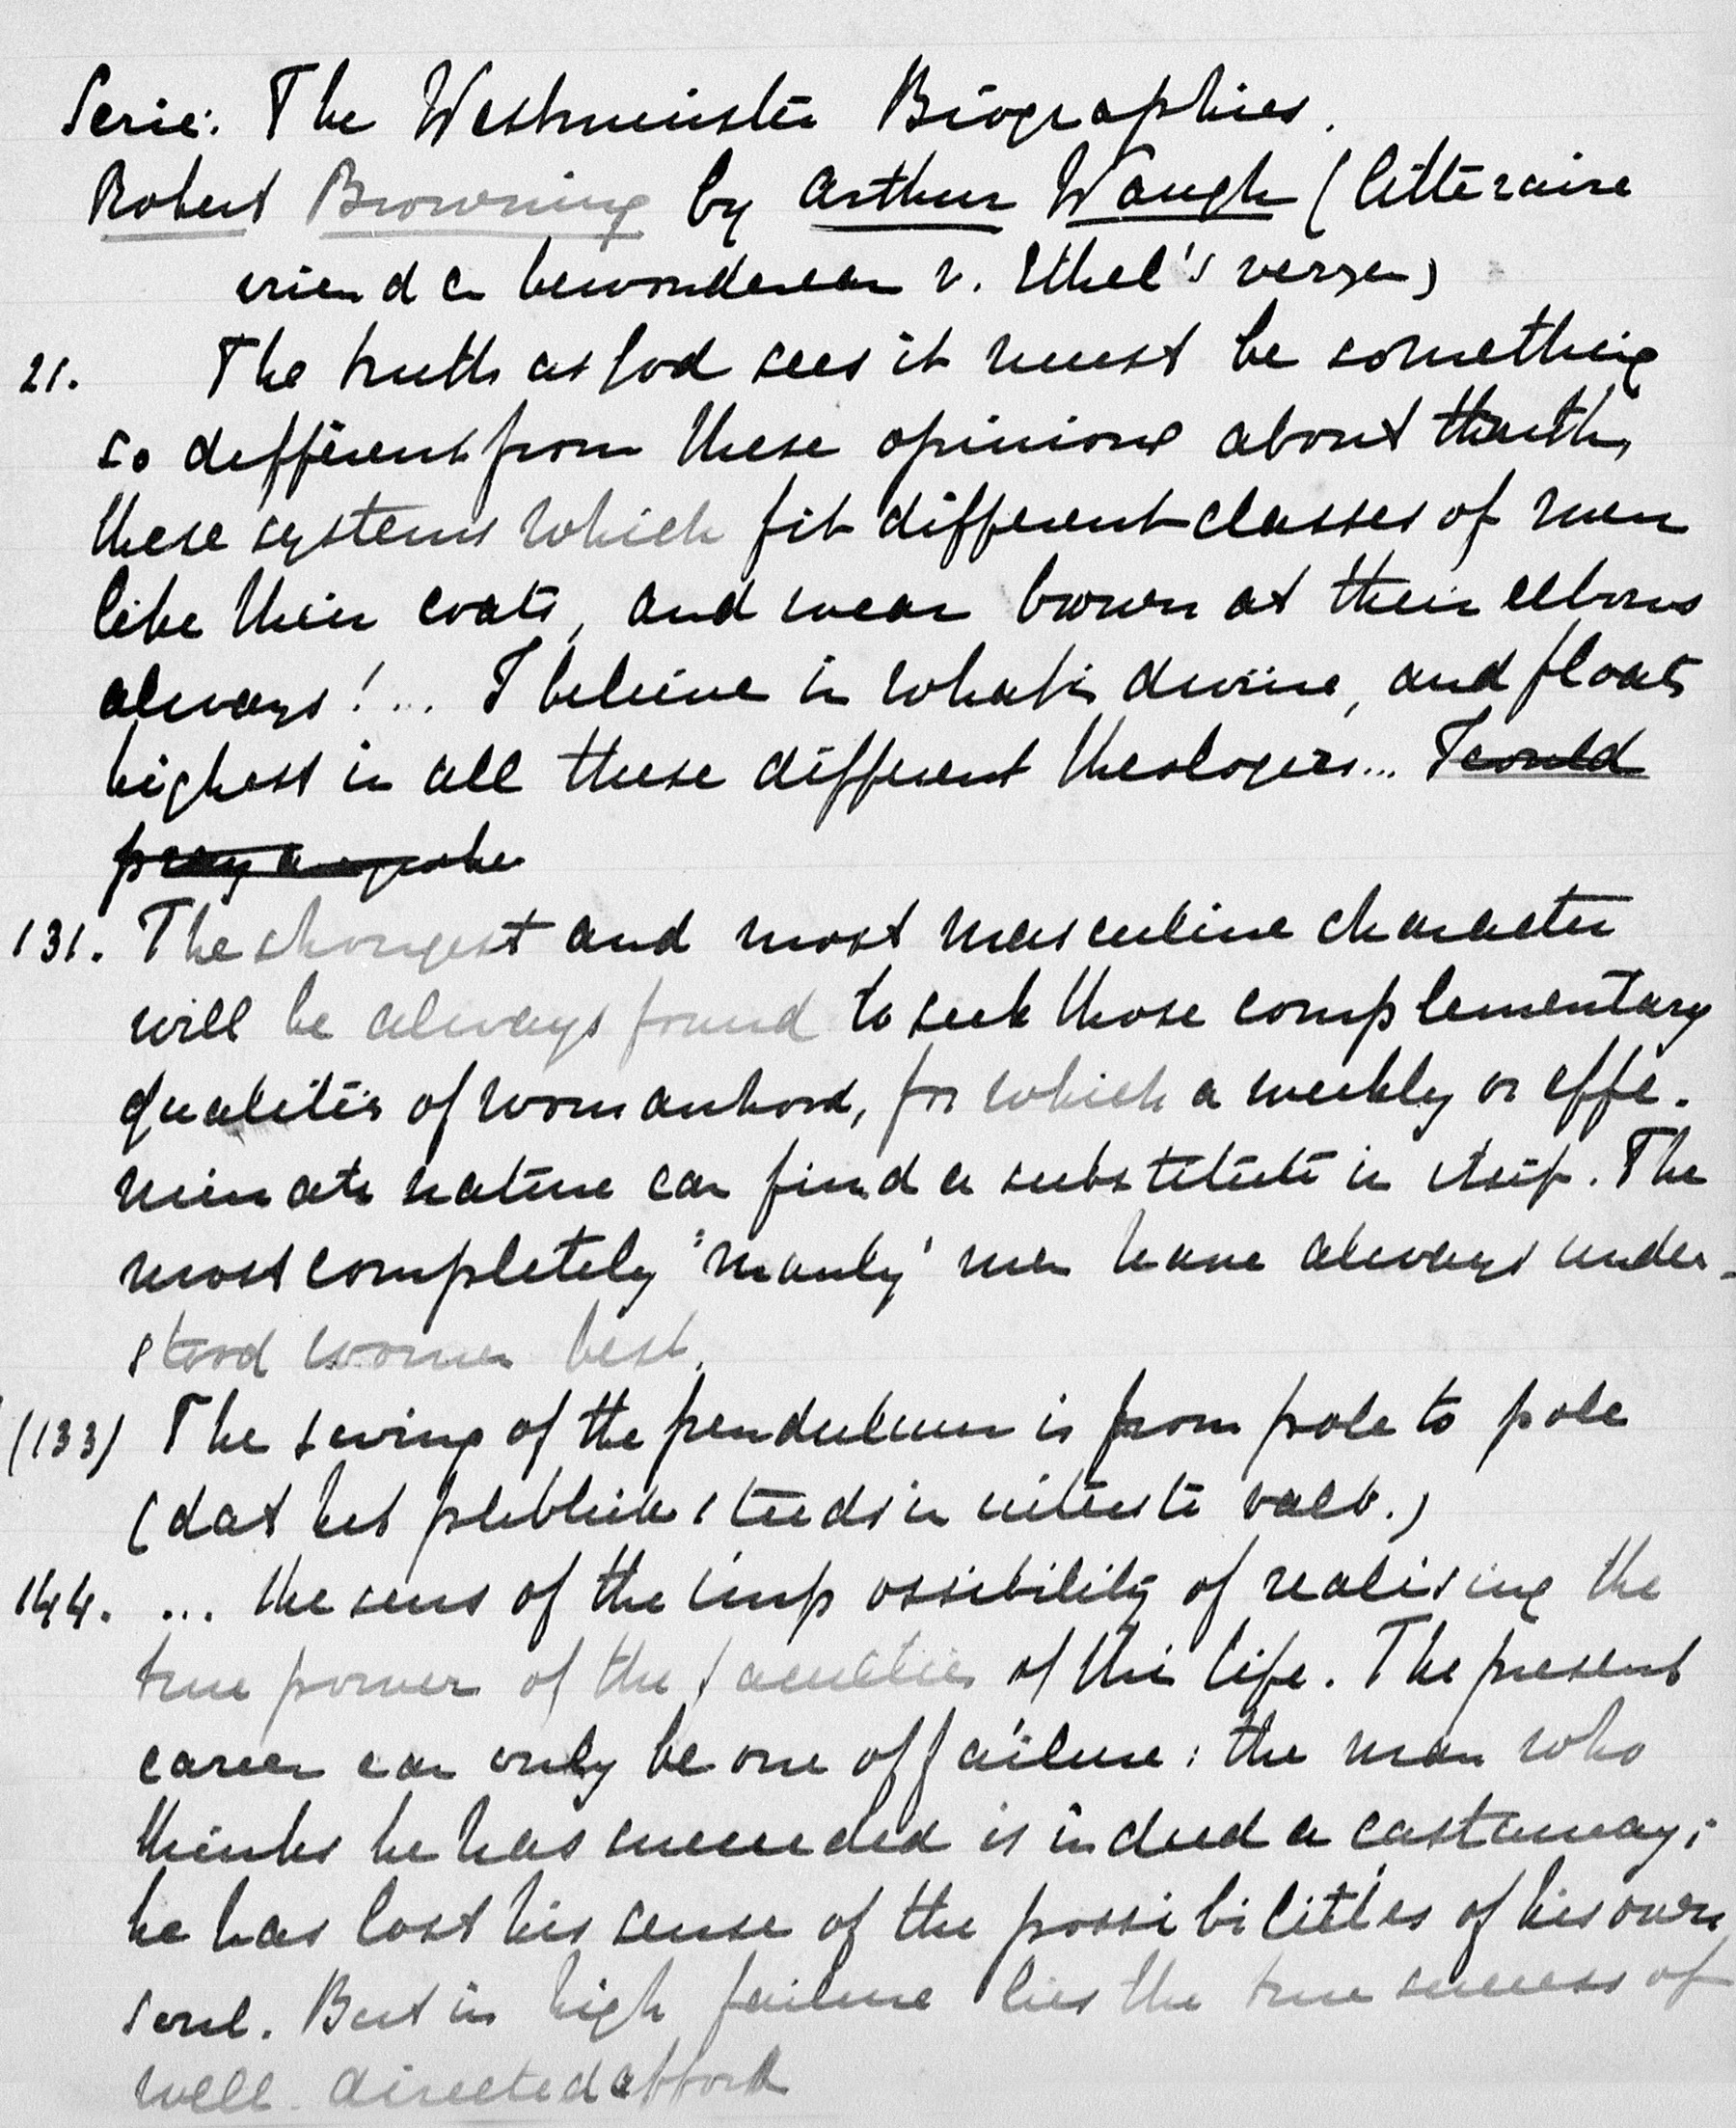 Serie: The Westminster Biographies.
Robert Browning by Arthur Waugh (litteraire
vriend en bewonderaar v. Ethel's verzen)
21. The truth as God sees it must be something
so different from these opinions about truth,
these systems which fit different classes of men
like their coats, and wear brown at their elbows
always! ... I believe in what is divine, and floats
highest in all these different theologies... I could
pray anywhere
131. The strongest and most masculine character
will be always found to seek those complementary
qualities of womanhood, for which a weekly or effe-
minate nature can find a substitute in itself. The
most completely 'manly' men have always under-
stood women best.
(133) The swing of the pendulum is from pole to pole
(dat het publiek steeds in uiterste valt.)
144. ... the sens of the impossibility of realising the
true power of the faculties of this life. The present
career can only be one of failure: the man who
thinks he has succeeded is indeed a castaway;
he has lost his sense of the possibilities of his own
soul. But in high failure lies the true success of
well-directed effort